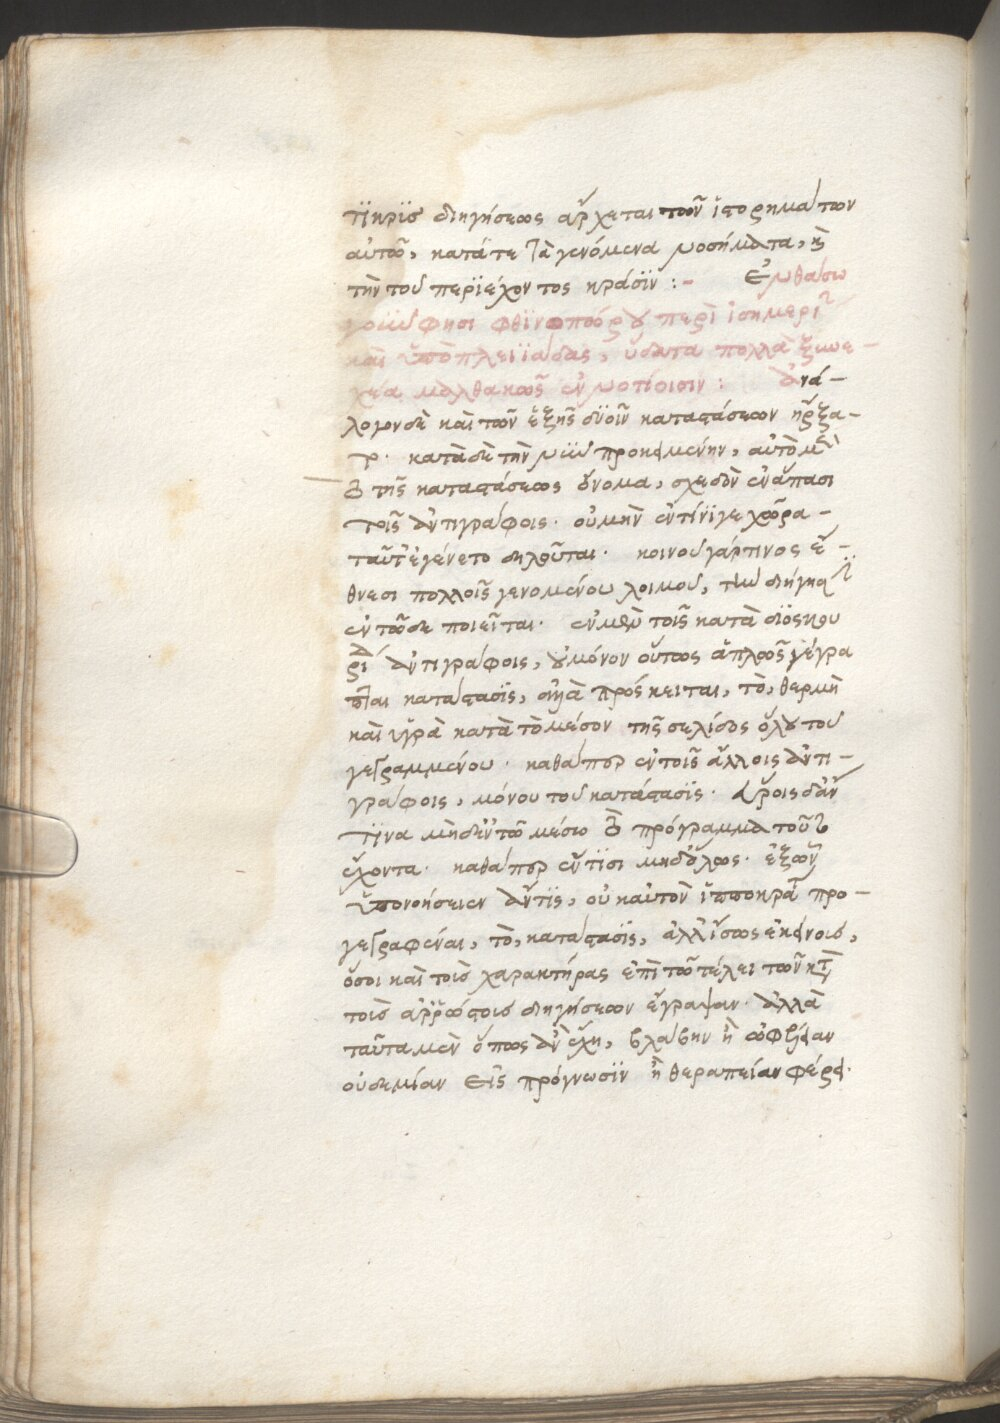 τῆς κρίσ διηγήσεως ἄρχεται τῶν ἱστορημάτων
αὐτῶ, κατά τε τὰ γενόμενα νοσήματα, καὶ
τὴν τοῦ περιέχοντος κράσιν :- Ἐν θάσω
φησι φθινοπώρου περὶ ἰσημερί
καὶ ὑπὸ πλειϊάδας, ὕδατα πολλὰ ξυνε-
χέα μαλθακῶς ἐν νοτίοισιν : Ἀνά-
λογον δὲ καὶ τῶν ἑξῆς δύοῖν καταστάσεων ἤρξα-
το. κατὰ δὲ τὴν νῦν προκειμένην, αὐτὸ μὲν
τὸ τῆς καταστάσεως ὄνομα, σχεδὸν ἐν ἅπασι
τοῖς ἀντιγράφοις. οὐ μὴν ἐν τίνι γε χώρα
ταῦτ' ἐγένετο δηλοῦται. κοινοῦ γάρ τινος ἔ-
θνεσι πολλοῖς γενομένου λοιμοῦ, τὴν διήγησιν
ἐν τῶδε ποιεῖται. ἐν μὲν τοῖς κατὰ διόσκου
ρί ἀντιγράφοις, οὐ μόνον οὕτως ἁπλῶς γέγρα
πται κατάστασϊς, ἀλλὰ πρόσκειται, τὸ, θερμὴ
καὶ ὑγρὰ κατὰ τὸ μέσον τῆς σελίδος ὅλου τοῦ
γεγραμμένου. καθάπερ ἐν τοῖς ἄλλοις ἀντι-
γράφοις, μόνου τοῦ κατάστασϊς. εὕροις δ' ἂν
τϊνα μηδ' ἐν τῶ μέσω τὸ πρόγραμμα τοῦτο
ἔχοντα. καθάπερ ἔν τϊσι μηδ' ὅλως. ἐξ ὧν
ὑπονοήσειεν ἄν τϊς, οὐκ αὐτὸν ἱπποκρά προ-
γεγραφέναι, τὸ, κατάστασϊς, ἀλλ' ἴσως ἐκείνους,
ὅσοι καὶ τοὺς χαρακτήρας ἐπὶ τῶ τέλει τῶν κατὰ
τοὺς ἀρρώστους διηγήσεων ἔγραψαν. ἀλλὰ
ταῦτα μὲν ὅπως ἂν ἔχη, βλάβην ἢ ὠφέλειαν
οὐδεμίαν εἰς πρόγνωσϊν ἢ θεραπείαν φέρει.